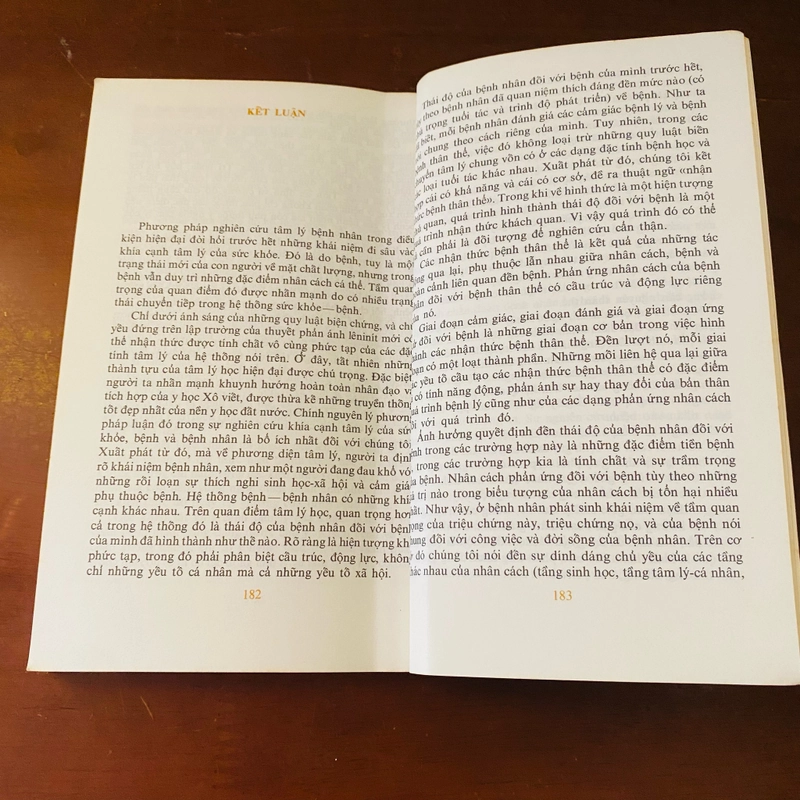 KẾT LUẬN
Phương pháp nghiên cứu tâm lý bệnh nhân trong điều
kiện hiện đại đòi hỏi trước hết những khái niệm đi sâu vào
khía cạnh tâm lý của sức khỏe. Đó là do bệnh, tuy là một
trạng thái mới của con người về mặt chất lượng, nhưng trong
bệnh vẫn duy trì những đặc điểm nhân cách cá thể. Tầm quan
trọng của quan điểm đó được nhấn mạnh do có nhiều trạng
thái chuyển tiếp trong hệ thống sức khỏe—bệnh.
Chỉ dưới ánh sáng của những quy luật biện chứng, và chủ
yếu đứng trên lập trường của thuyết phản ánh lêninit mới có
thể nhận thức được tính chất vô cùng phức tạp của các đặc
tính tâm lý của hệ thống nói trên. Ở đây, tất nhiên những
thành tựu của tâm lý học hiện đại được chú trọng. Đặc biệt
người ta nhấn mạnh khuynh hướng hoàn toàn nhân đạo và
tích hợp của y học Xô viết, được thừa kế những truyền thống
tốt đẹp nhất của nền y học đất nước. Chính nguyên lý phương
pháp luận đó trong sự nghiên cứu khía cạnh tâm lý của sức
khỏe, bệnh và bệnh nhân là bổ ích nhất đối với chúng tôi.
Xuất phát từ đó, mà về phương diện tâm lý, người ta định
rõ khái niệm bệnh nhân, xem như một người đang đau khổ với
những rối loạn sự thích nghi sinh học-xã hội và cảm giác
phụ thuộc bệnh. Hệ thống bệnh—bệnh nhân có những khía
cạnh khác nhau. Trên quan điểm tâm lý học, quan trọng hơn
cả trong hệ thống đó là thái độ của bệnh nhân đối với bệnh
của mình đã hình thành như thế nào. Rõ ràng là hiện tượng khá
phức tạp, trong đó phải phân biệt cấu trúc, động lực, không
chỉ những yếu tố cá nhân mà cả những yếu tố xã hội.
182
Thái độ của bệnh nhân đối với bệnh của mình trước hết,
theo bệnh nhân đã quan niệm thích đáng đến mức nào (có
trọng tuổi tác và trình độ phát triển) về bệnh. Như ta
biết, mỗi bệnh nhân đánh giá các cảm giác bệnh lý và bệnh
chung theo cách riêng của mình. Tuy nhiên, trong các
thân thể, việc đó không loại trừ những quy luật biến
tâm lý chung vốn có ở các dạng đặc tính bệnh học và
loại tuổi tác khác nhau. Xuất phát từ đó, chúng tôi kết
cái có khả năng và cái có cơ sở, để ra thuật ngữ «nhận
bệnh thân thể». Trong khi về hình thức là một hiện tượng
quan, quá trình hình thành thái độ đối với bệnh là một
trình nhận thức khách quan. Vì vậy quá trình đó có thể
cần phải là đối tượng để nghiên cứu cẩn thận.
Các nhận thức bệnh thân thể là kết quả của những tác
qua lại, phụ thuộc lẫn nhau giữa nhân cách, bệnh và
cảnh liên quan đến bệnh. Phản ứng nhân cách của bệnh
đối với bệnh thân thể có cấu trúc và động lực riêng
nó.
Giai đoạn cảm giác, giai đoạn đánh giá và giai đoạn ứng
đối với bệnh là những giai đoạn cơ bản trong việc hình
các nhận thức bệnh thân thể. Đến lượt nó, mỗi giai
có một loạt thành phần. Những mối liên hệ qua lại giữa
yếu tố cấu tạo các nhận thức bệnh thân thể có đặc điểm
có tính năng động, phản ánh sự hay thay đổi của bản thân
trình bệnh lý cũng như của các dạng phản ứng nhân cách
với quá trình đó.
Ảnh hưởng quyết định đến thái độ của bệnh nhân đối với
trong các trường hợp này là những đặc điểm tiền bệnh
trong các trường hợp kia là tính chất và sự trầm trọng
bệnh. Nhân cách phản ứng đối với bệnh tùy theo những
trị nào trong biểu tượng của nhân cách bị tổn hại nhiều
Như vậy, ở bệnh nhân phát sinh khái niệm về tầm quan
của triệu chứng này, triệu chứng nọ, và của bệnh nói
đối với công việc và đời sống của bệnh nhân. Trên cơ
đó chúng tôi nói đến sự dinh dáng chủ yếu của các tầng
nhau của nhân cách (tầng sinh học, tầng tâm lý-cá nhân,
183